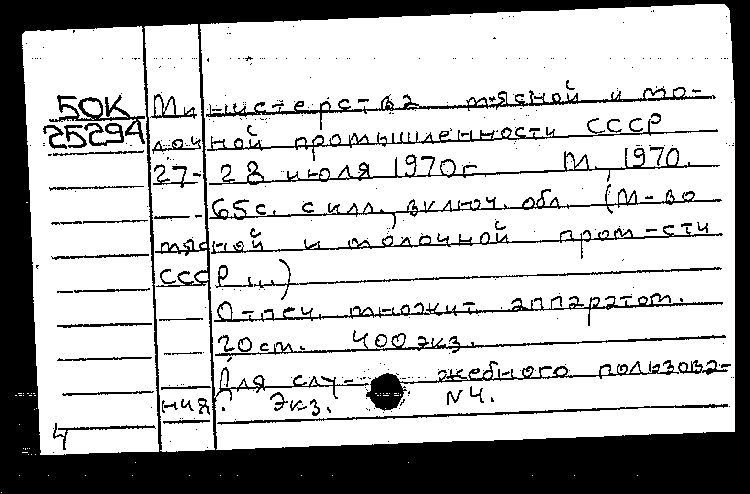 50К Министерства мясной и мо-
25294 лочной промышленности СССР
27-28 июля 1970г. М. 1970.
65с. с илл., включ. обл. (М-во
мясной и молочной пром-сти
СССР ...)
Отпеч. множит. аппаратом.
20см. 400 экз.
Для слу- жебного пользова-
ния. Экз. N4.
4